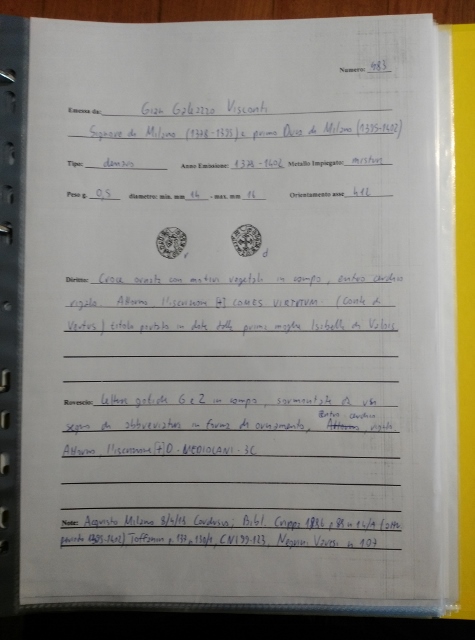 Numero: 483
Emessa da: Gian Galeazzo Visconti
Signore di Milano (1378-1395) e primo Duca di Milano (1395-1402)
Tipo: denaro Anno Emissione: 1378-1402 Metallo Impiegato: mistura
Peso g. 0,5 diametro: min. mm 14 - max. mm 16 Orientamento asse
r d
Diritto: Croce ornata con motivi vegetali in campo, entro cerchio
rigato. Attorno l'iscrizione [+] COMES VIRTUTUM. (Conte di
Vertus) titolo portato in dote dalla prima moglie Isabella di Valois
Rovescio: Lettere gotiche G e Z in campo, sormontate da un
segno di abbreviatura in forma di ornamento, entro cerchio rigato
Attorno, l'iscrizione [+] D · MEDIOLANI · 3C
Note: Acquisto Milano Cordusio; Bibl. Crippa p 85 n
1395-1402) Toffanin p. CNI Negrini Varesi n. 107